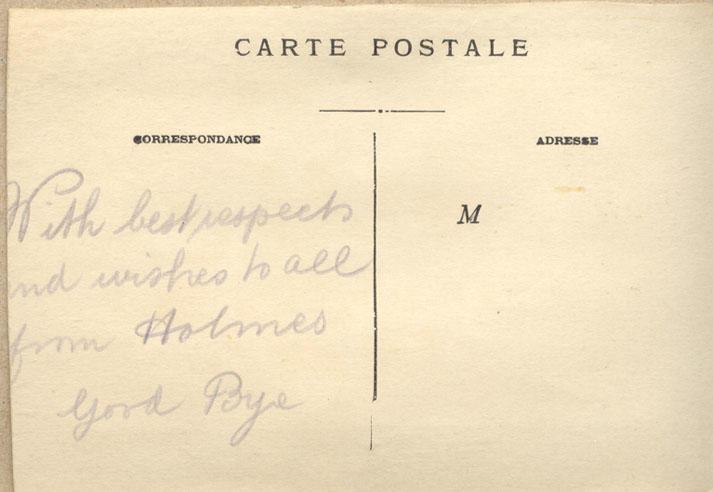 CARTE POSTALE
CORRESPONDANCE
ADRESSE
With best respects
and wishes to all
from Holmes
Good Bye
M